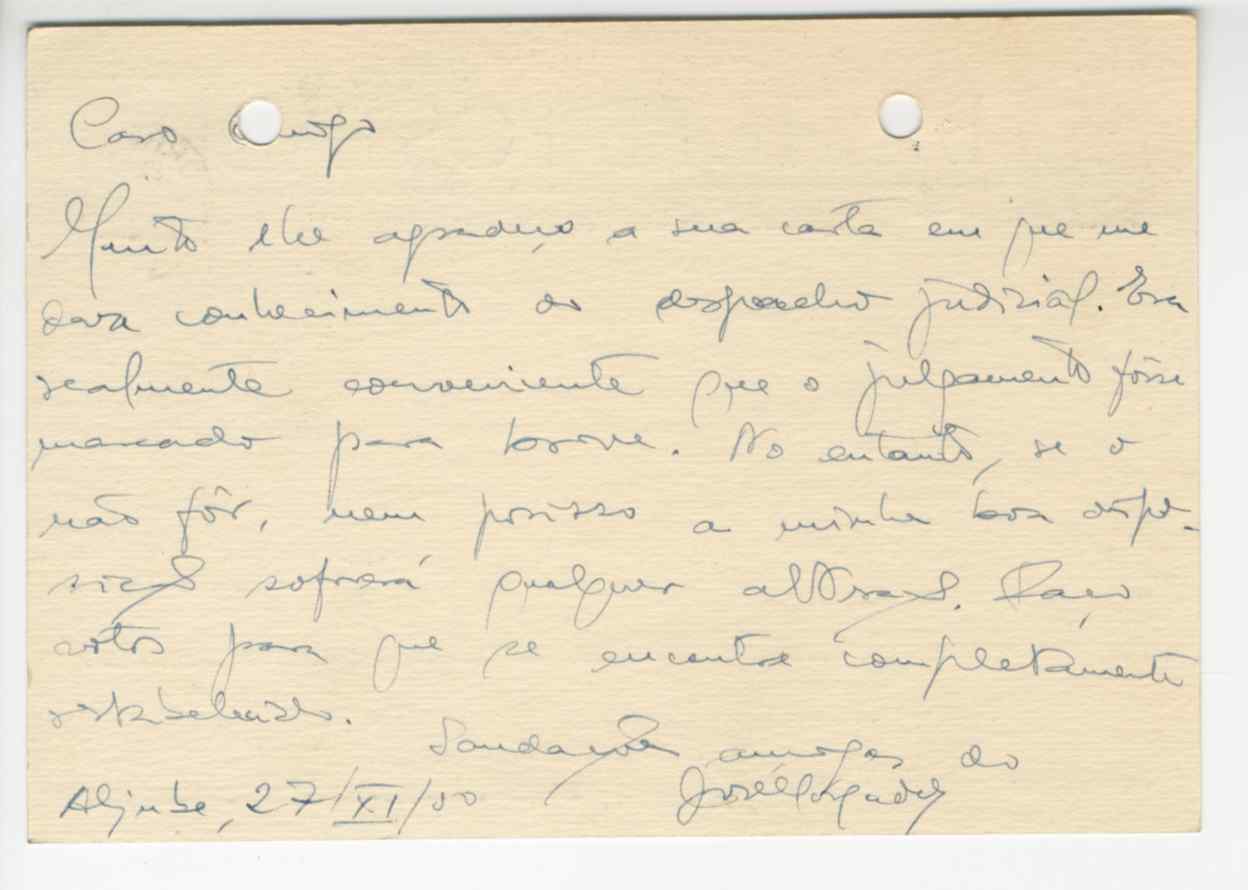 Caro Amigo
Muito lhe agradeço a sua carta em que me
dava conhecimento do despacho judicial. Era
realmente conveniente que o julgamento fôsse
marcado para breve. No entanto, se o
não fôr, nem por isso a minha boa dispo-
sição sofrerá qualquer alteração. Faço
votos para que se encontre completamente
restabelecido.
Saudações amigas do
Aljube, 27/XI/50 José Morgado